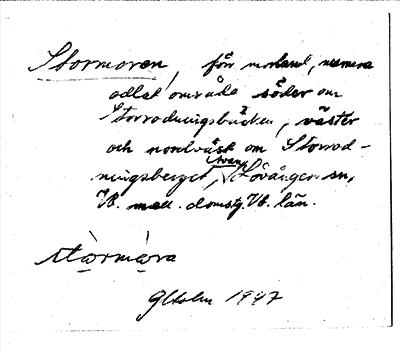 Stormoren, förr morland, numera
odlat område söder om
Storrodningsbäcken, väster
och nordväst om Storrod-
ningsberget, Lövånger sn,
Vb. mell. domsg. Vb. län.
stòrmòra
1947